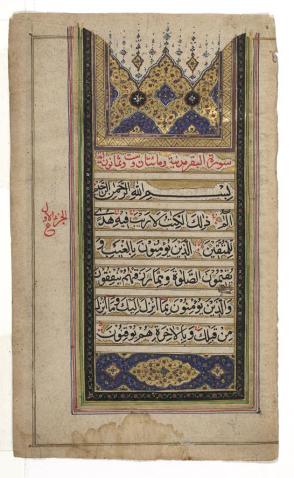 سورة البقر مدنية ومائتان وست وثمانون
بسم الله الرحمن الرحيم
الم ذلك الكتب لا ريب فيه هدى
للمتقين الذين يؤمنون بالغيب و
يقيمون الصلوة ومما رزقنهم ينفقون
والذين يؤمنون بما انزل اليك وما انزل
من قبلك وبالاخرة هم يوقنون
الجزء الاول